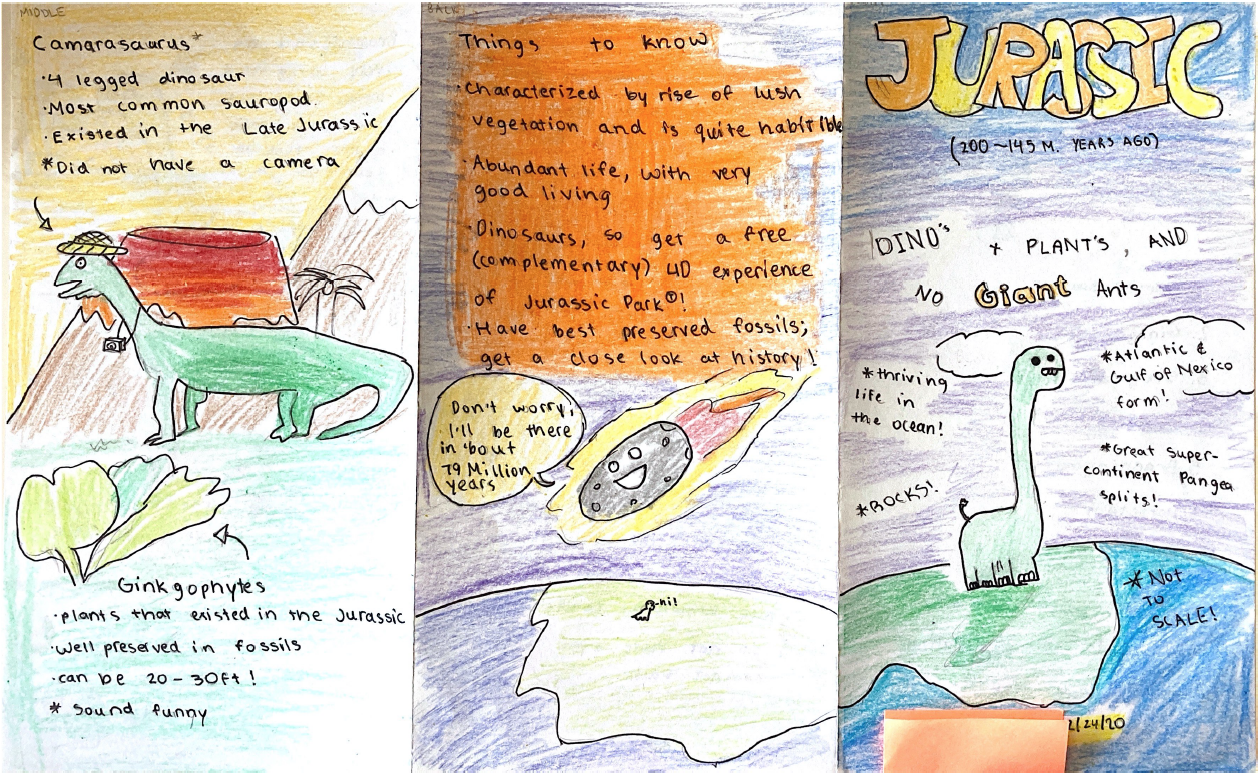 MIDDLE
Camarasaurus*
·4 legged dinosaur
·Most common sauropod.
·Existed in the Late Jurassic
*Did not have a camera
Ginkgophytes
·plants that existed in the Jurassic
·well preserved in fossils
·can be 20-30ft!
* Sound funny
BACK
Things to know
·Characterized by rise of lush
vegetation and is quite habitible
·Abundant life, with very
good living
·Dinosaurs, so get a free
(complementary) 4D experience
of Jurassic Park®!
·Have best preserved fossils;
get a close look at history!
Don't worry,
I'll be there
in 'bout
79 Million
years
-hi!
JURASSIC
(200~145 M. YEARS AGO)
DINO'S + PLANT'S, AND
NO Giant Ants
*thriving
life in
the ocean!
*Atlantic &
Gulf of Mexico
form!
*Great Super-
continent Pangea
splits!
*ROCKS!
*NOT
TO
SCALE!
2/24/20